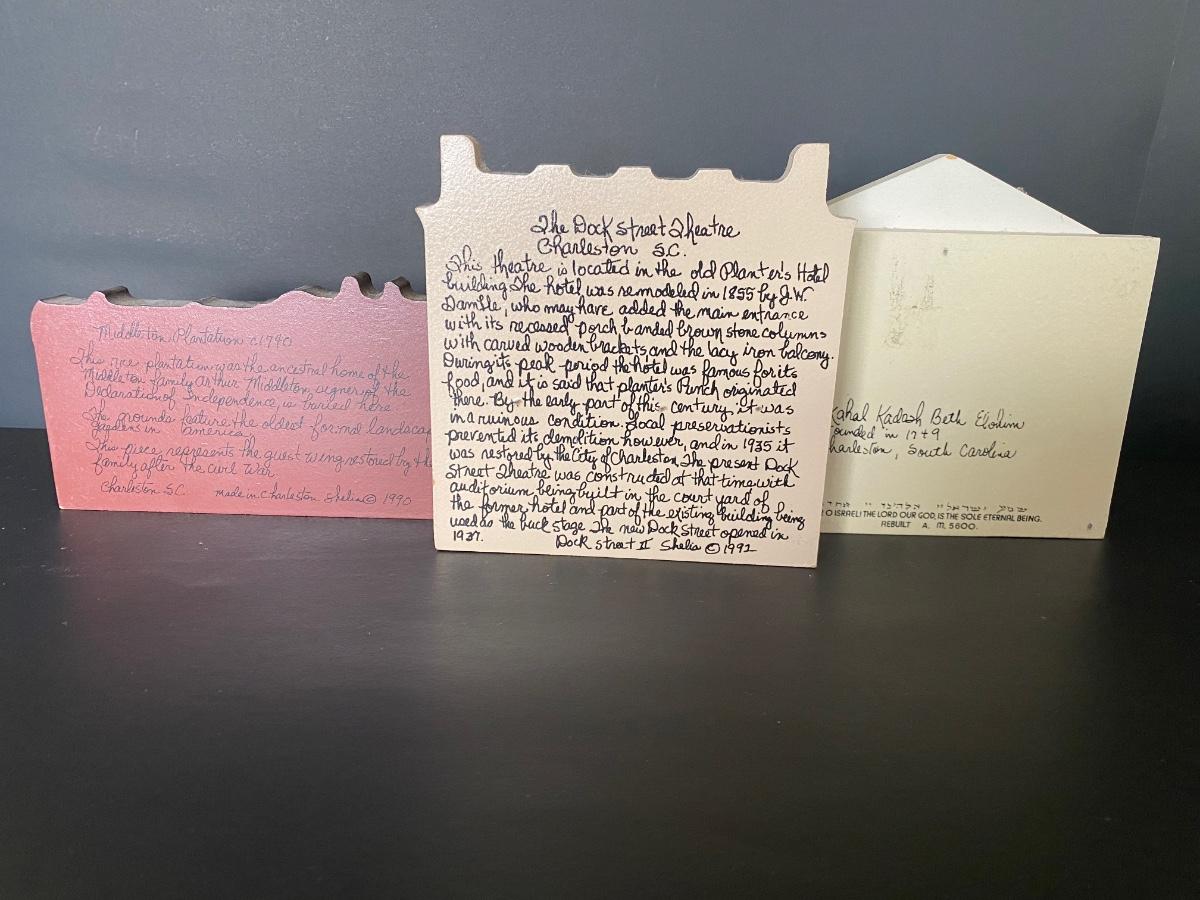 Middleton Plantation c1790
This rice plantation was the ancestral home of the
Middleton family Arthur Middleton, signer of the
Declaration of Independence, is buried here
The grounds feature the oldest formal landscap
gardens in America.
This piece represents the guest wing restored by th
family after the civil war.
Charleston S.C. made in Charleston. Shelia © 1990
The Dock Street Theatre
Charleston S.C.
This theatre is located in the old Planter's Hotel
building. The hotel was remodeled in 1855 by J.W.
Gamble, who may have added the main entrance
with its recessed porch banded brown stone columns
with carved wooden brackets and the lacy iron balcony.
During its peak period the hotel was famous for its
food, and it is said that planter's Punch originated
there. By the early part of this century, it was
in a ruinous condition. Local preservationists
prevented its demolition however, and in 1935 it
was restored by the City of Charleston. The present Dock
Street Theatre was constructed at that time with
auditorium being built in the court yard of
the former hotel and part of the existing building being
used as the back stage. The new Dock Street opened in
1937.
Dock Street II Shelia © 1992
Kahal Kadosh Beth Elohim
ounded in 1749
harleston, South Carolina
שמע ישראל יי אלהינו יי אחד
O ISRAEL! THE LORD OUR GOD, IS THE SOLE ETERNAL BEING.
REBUILT A. M. 5600.